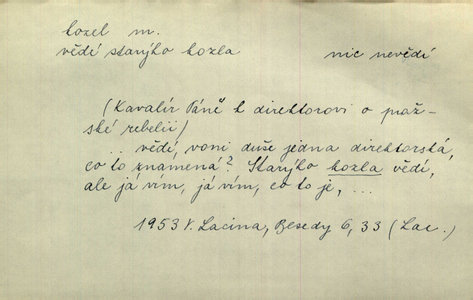 kozel m.
vědí starýho kozla nic nevědí
(Kavalír Páně k direktorovi o praž-
ské rebelii)
.. vědí, voni duše jedna direktorská,
co to znamená? Starýho kozla vědí,
ale já vím, já vím, co to je, ...
1953 V. Lacina, Besedy 6, 33 (Lac.)